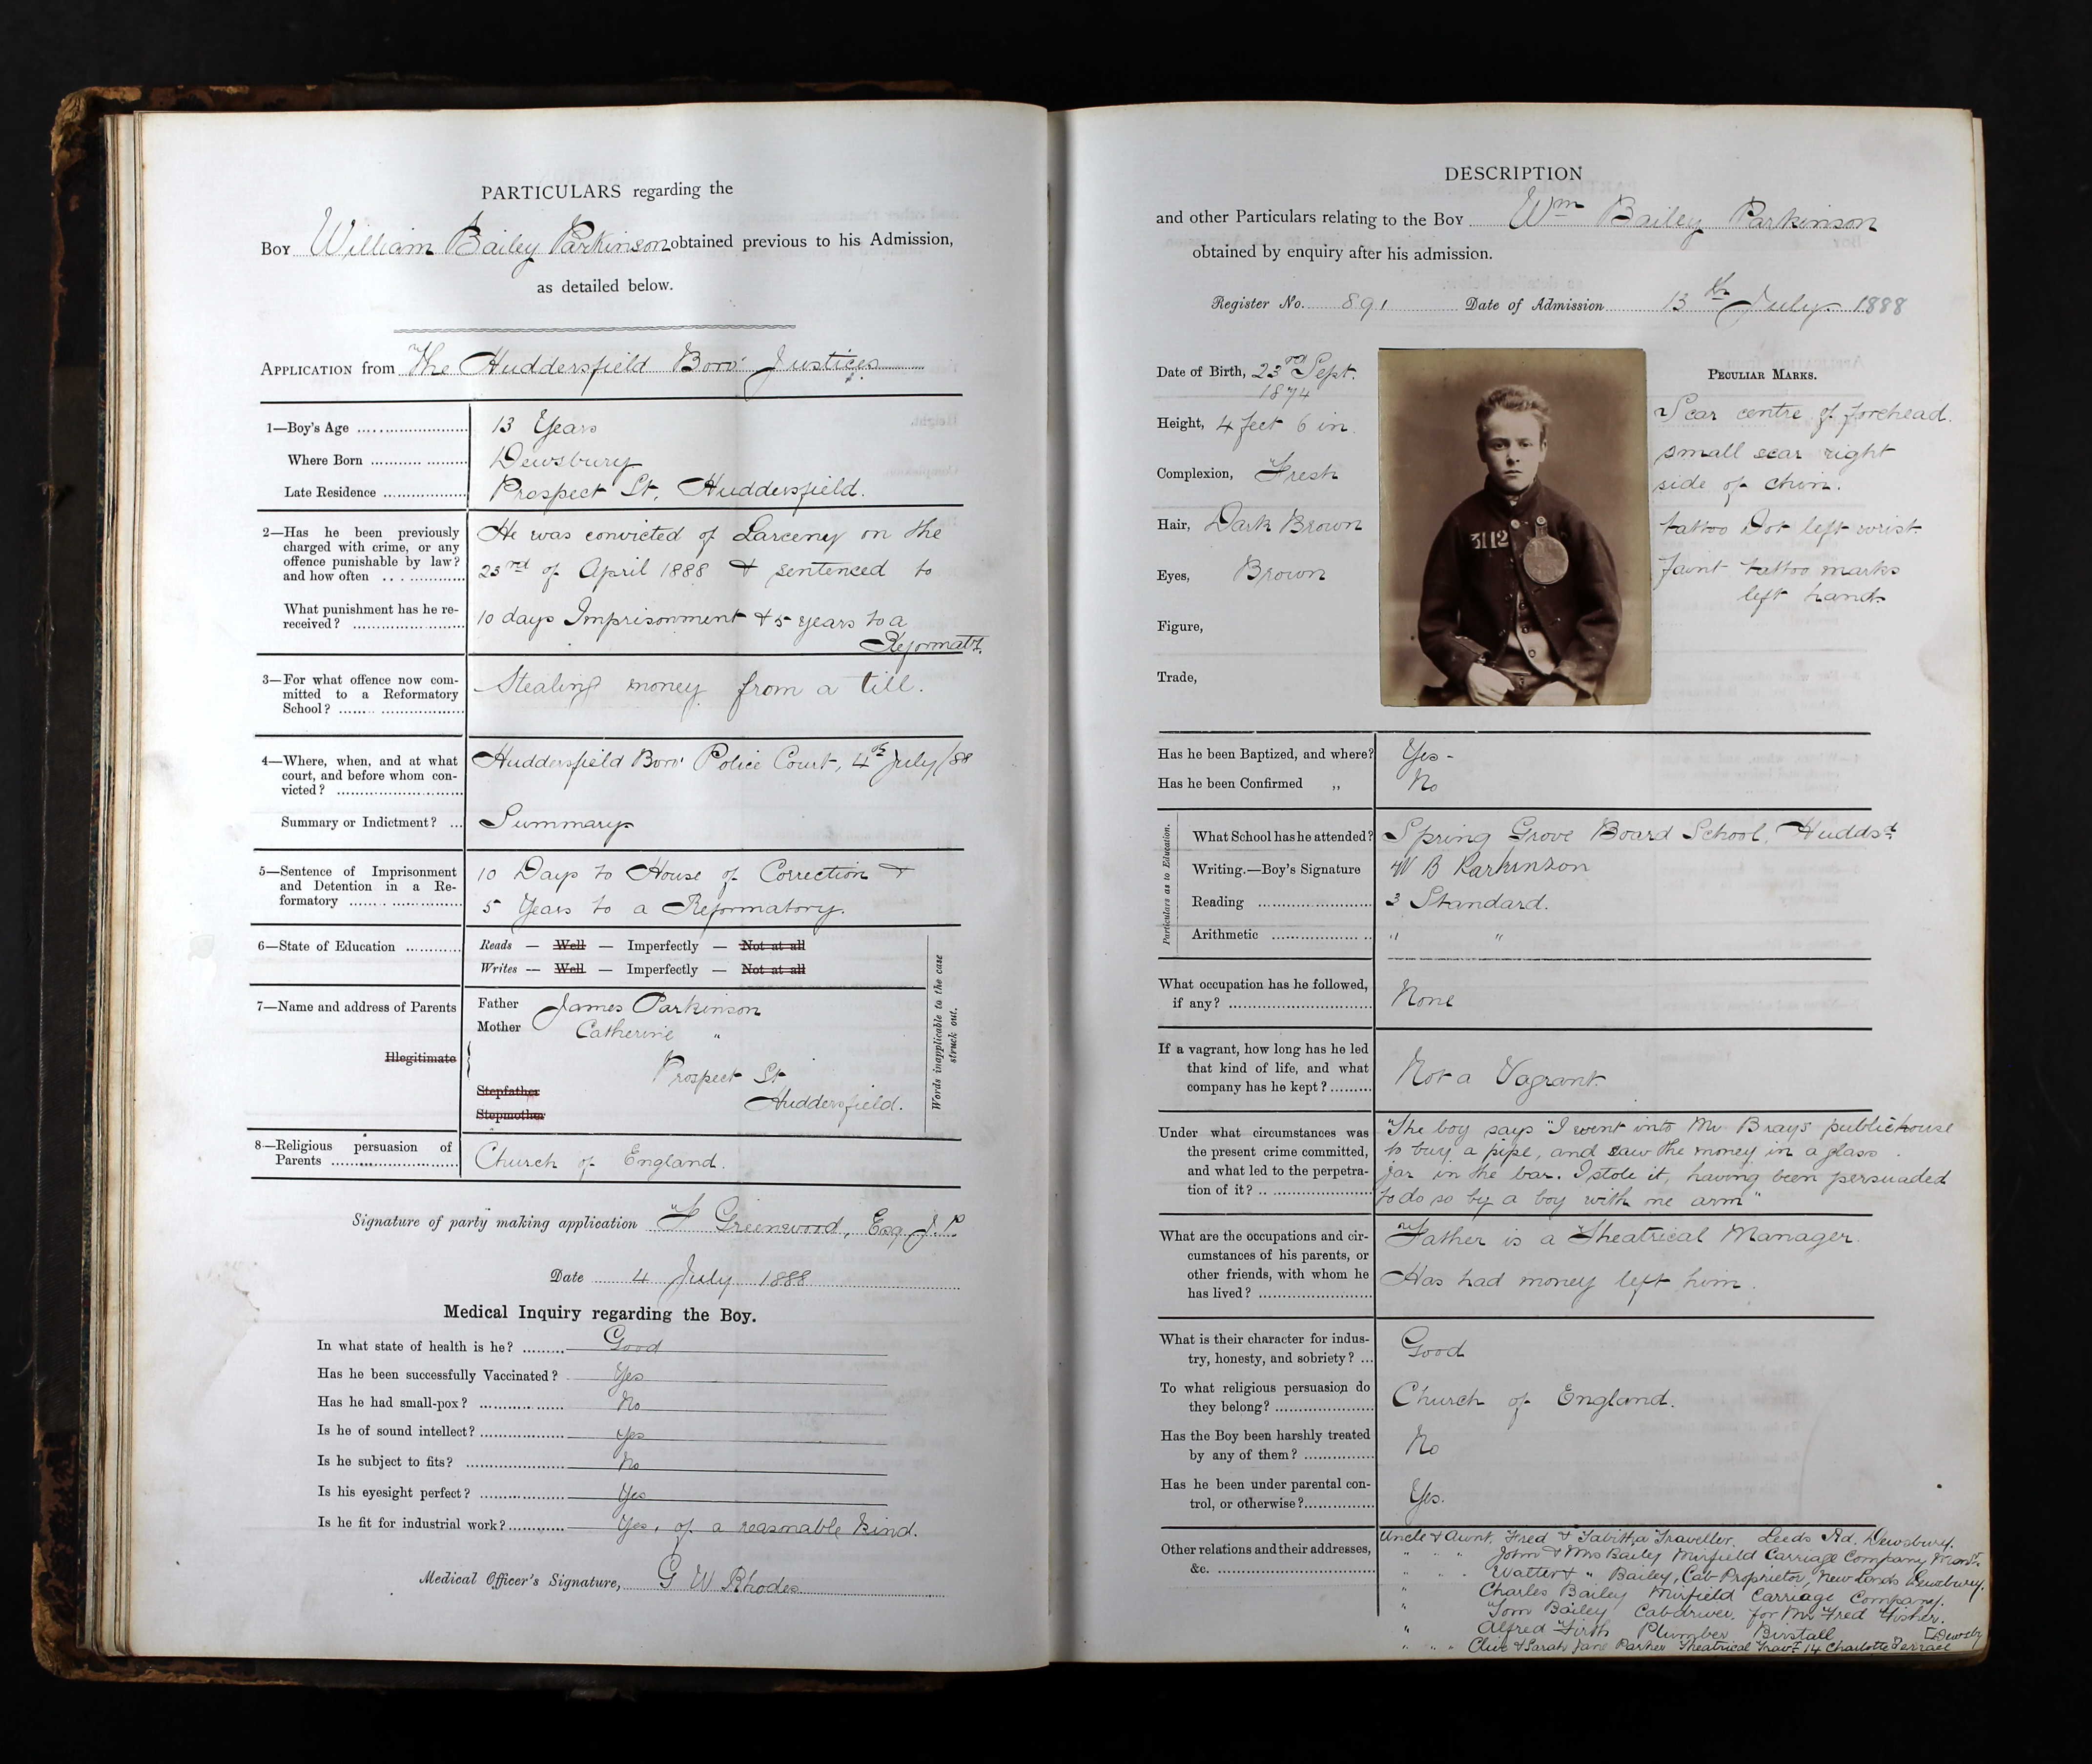 PARTICULARS regarding the
Boy William Bailey Parkinson obtained previous to his Admission,
as detailed below.
APPLICATION from The Huddersfield Boro' Justices
1—Boy's Age 13 Years
Where Born Dewsbury
Late Residence Prospect St, Huddersfield.
2—Has he been previously
charged with crime, or any
offence punishable by law?
and how often
What punishment has he re-
ceived?
He was convicted of Larceny on the
23rd of April 1888 & sentenced to
10 days Imprisonment & 5 years to a
Reformaty.
3—For what offence now com-
mitted to a Reformatory
School?
Stealing money from a till.
4—Where, when, and at what
court, and before whom con-
victed?
Huddersfield Boro' Police Court, 4th July/88
Summary or Indictment? Summary
5—Sentence of Imprisonment
and Detention in a Re-
formatory
10 Days to House of Correction &
5 Years to a Reformatory.
6—State of Education
Reads — Well — Imperfectly — Not at all
Writes — Well — Imperfectly — Not at all
Words inapplicable to the case
struck out.
7—Name and address of Parents
Father James Parkinson
Mother Catherine "
Illegitimate
Prospect St
Stepfather
Huddersfield.
Stepmother
8—Religious persuasion of
Parents
Church of England.
Signature of party making application Greenwood, Esq J.P.
Date 4 July 1888
Medical Inquiry regarding the Boy.
In what state of health is he? Good
Has he been successfully Vaccinated? Yes
Has he had small-pox? No
Is he of sound intellect? Yes
Is he subject to fits? No
Is his eyesight perfect? Yes
Is he fit for industrial work? Yes, of a reasonable kind.
Medical Officer's Signature, G W Rhodes
DESCRIPTION
and other Particulars relating to the Boy Wm Bailey Parkinson
obtained by enquiry after his admission.
Register No. 891 Date of Admission 13th July 1888
Date of Birth, 23rd Sept.
1874
Height, 4 feet 6 in.
Complexion, Fresh
Hair, Dark Brown
Eyes, Brown
Figure,
Trade,
3112
PECULIAR MARKS.
Scar centre of forehead.
small scar right
side of chin.
tattoo Dot left wrist.
Faint tattoo marks
left hand.
Has he been Baptized, and where? Yes -
Has he been Confirmed ,, No
Particulars as to Education.
What School has he attended? Spring Grove Board School, Huddsd
Writing.—Boy's Signature W B Parkinson
Reading 3 Standard.
Arithmetic " "
What occupation has he followed,
if any?
None
If a vagrant, how long has he led
that kind of life, and what
company has he kept?
Not a Vagrant
Under what circumstances was
the present crime committed,
and what led to the perpetra-
tion of it?
The boy says "I went into Mr Brays publichouse
to buy a pipe, and saw the money in a glass
jar in the bar. I stole it, having been persuaded
to do so by a boy with one arm"
What are the occupations and cir-
cumstances of his parents, or
other friends, with whom he
has lived?
Father is a Theatrical Manager.
Has had money left him.
What is their character for indus-
try, honesty, and sobriety?
Good
To what religious persuasion do
they belong?
Church of England.
Has the Boy been harshly treated
by any of them?
No
Has he been under parental con-
trol, or otherwise?
Yes.
Other relations and their addresses,
&c.
Uncle & Aunt. Fred & Tabitha Traveller. Leeds Rd. Dewsbury.
" " " John & Mrs Bailey Mirfield Carriage Company
" " " Walter & " Bailey, Cab Proprietor, New Lords Dewsbury.
" Charles Bailey Mirfield Carriage Company.
" Tom Bailey Cabdriver for Mr Fred Fisher.
" Alfred Firth Plumber Birstall [Dewsby
" " " Clive & Sarah Jane Parker Theatrical Travr 14 Charlotte Terrace